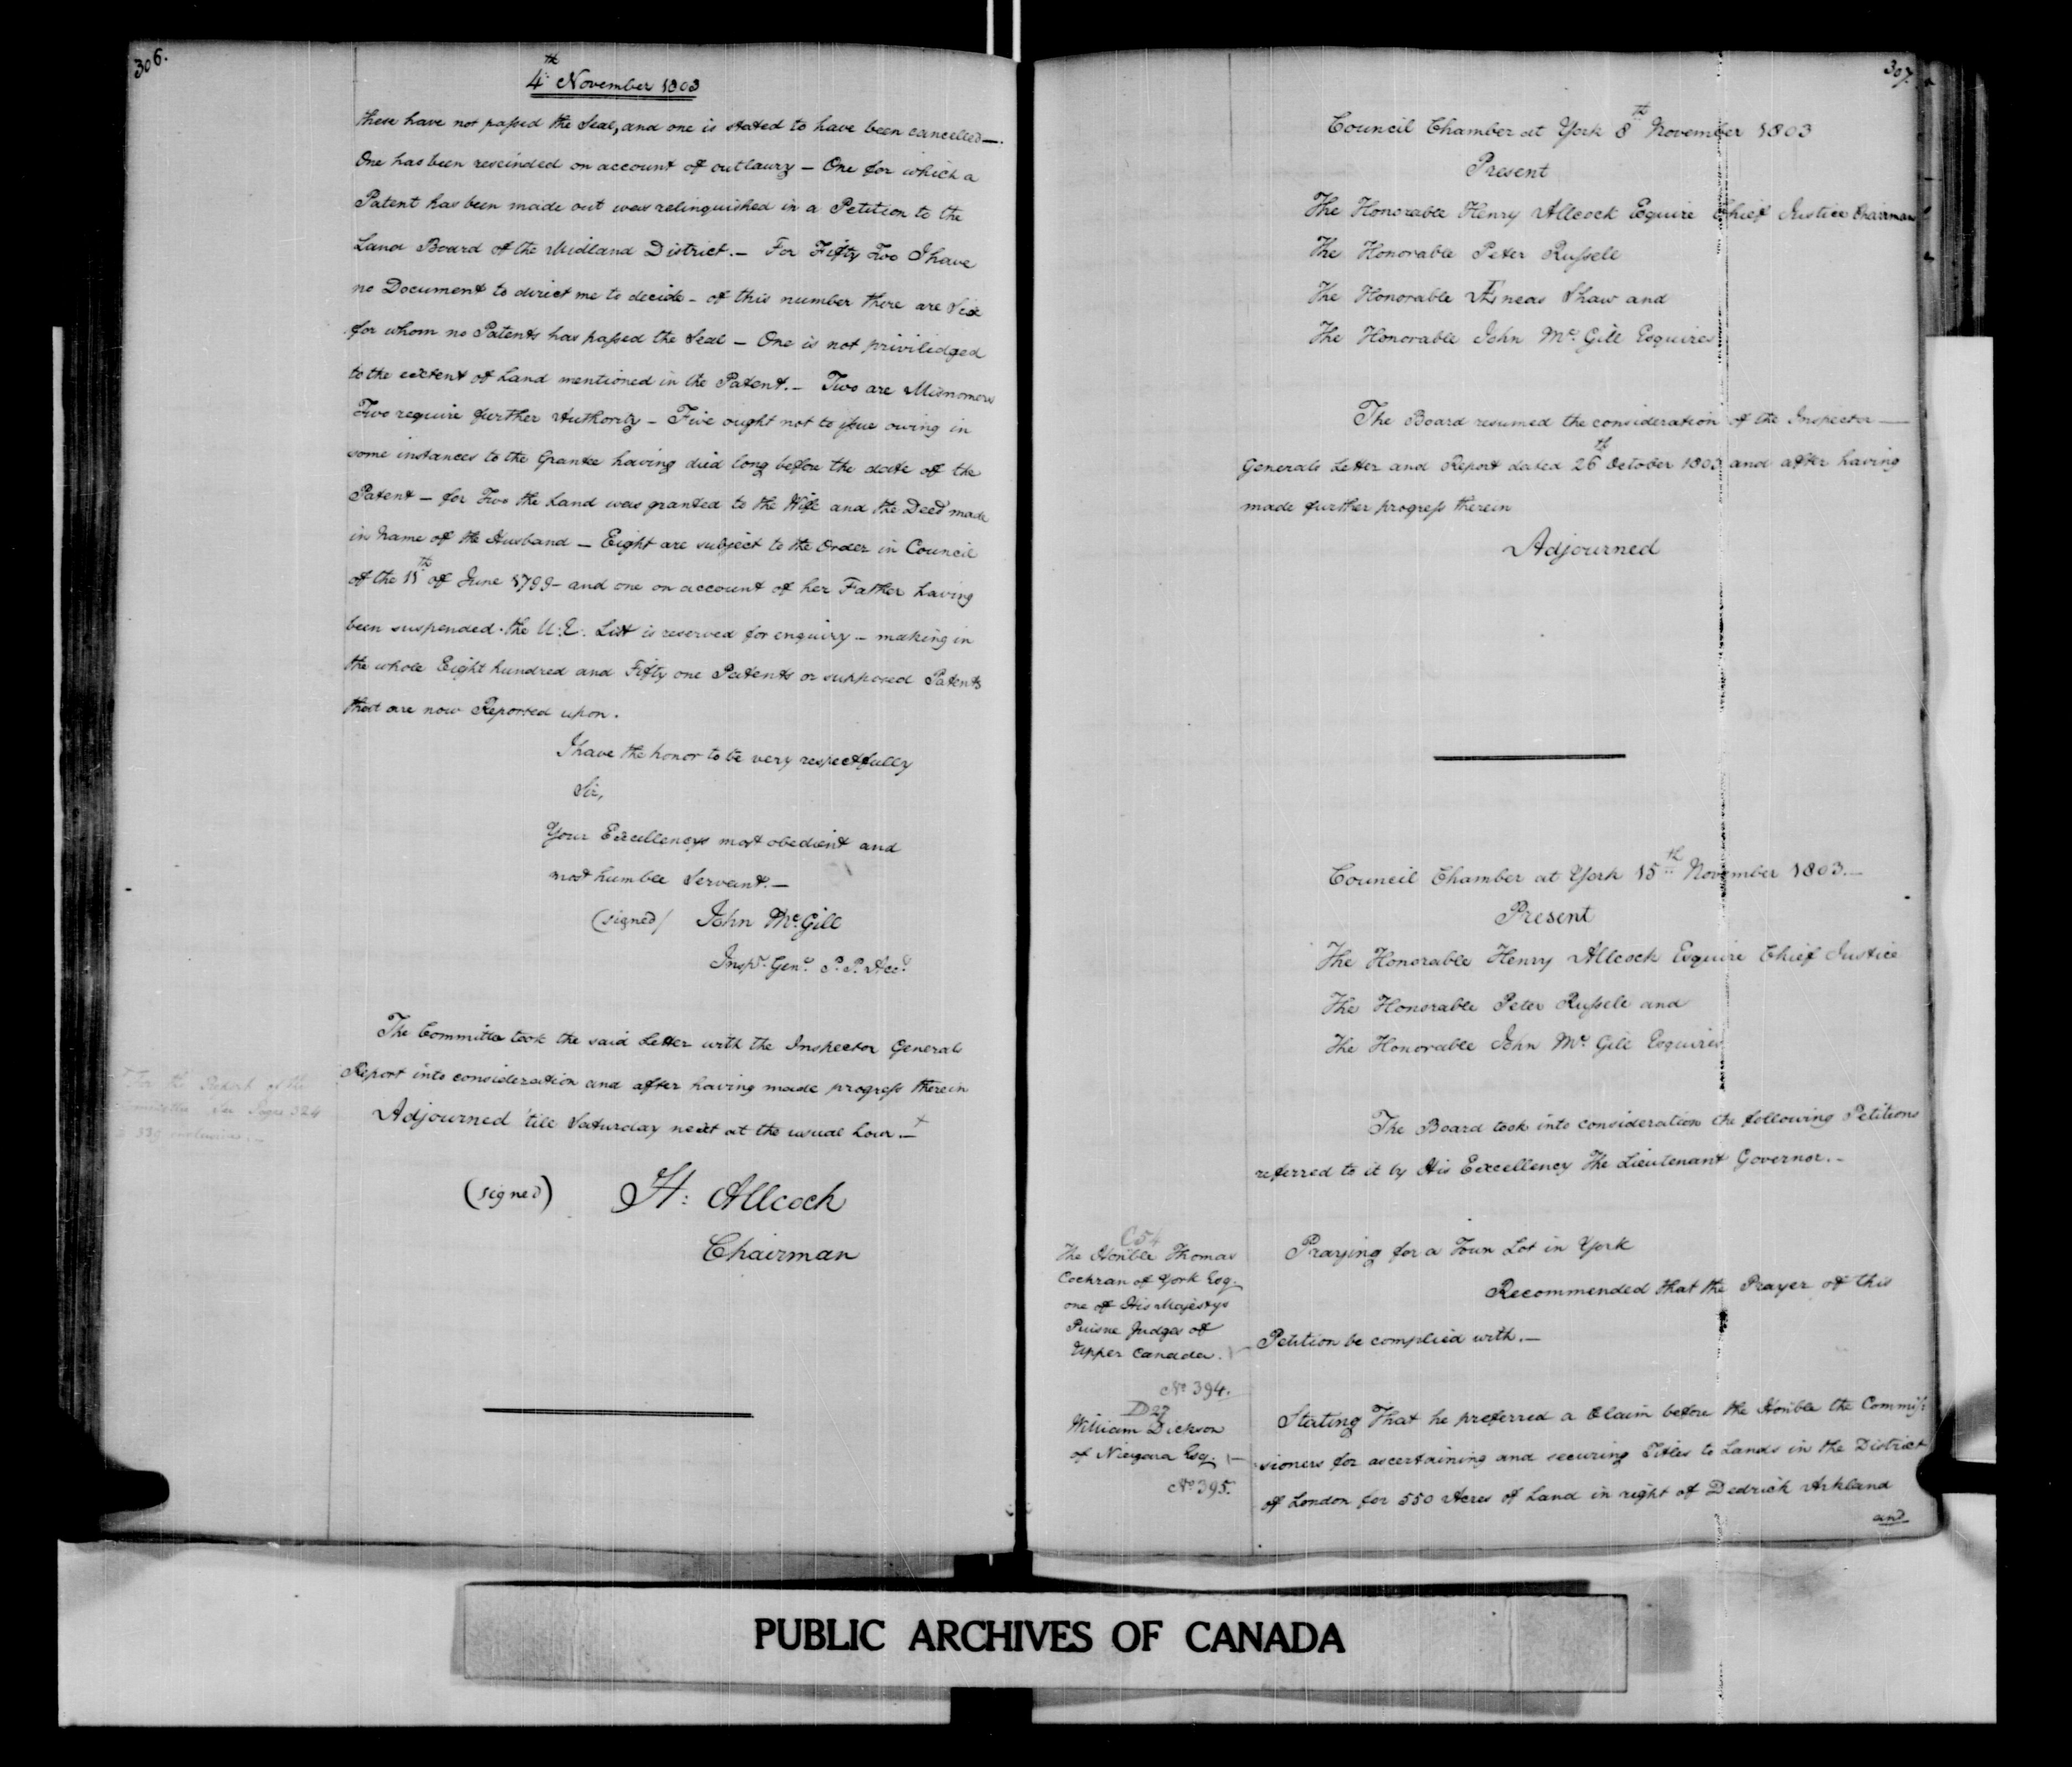 306.
4th November 1803
these have not passed the Seal, and one is stated to have been cancelled—.
One has been rescinded on account of outlawry — One for which a
Patent has been made out was relinquished in a Petition to the
Land Board of the Midland District. — For Fifty Two I have
no Document to direct me to decide — of this number there are Six
for whom no Patents has passed the Seal — One is not priviledged
to the extent of Land mentioned in the Patent. — Two are Misnomers
Two require further Authority — Five ought not to issue owing in
some instances to the Grantee having died long before the date of the
Patent — for Two the Land was granted to the Wife and the Deed made
in Name of the Husband — Eight are subject to the Order in Council
of the 15th of June 1799 — and one on account of her Father having
been suspended the U.E. List is reserved for enquiry — making in
the whole Eight hundred and Fifty one Patents or supposed Patents
that are now Reported upon.
I have the honor to be very respectfully
Sir,
Your Excellencys most obedient and
most humble Servant. —
(signed) John McGill
Inspr. Genl. P. P. Acct.
The Committee took the said Letter with the Inspector Generals
Report into consideration and after having made progress therein
Adjourned 'till Saturday next at the usual hour. — +
For the Report of the
Committee See Pages 324
339 inclusive. —
(signed) H: Allcock
Chairman
307.
Council Chamber at York 8th November 1803
Present
The Honorable Henry Allcock Equire Chief Justice Chairman
The Honorable Peter Russell
The Honorable Æneas Shaw and
The Honorable John Mc. Gill Esquires
The Board resumed the consideration of the Inspector —
Generals Letter and Report dated 26th October 1803 and after having
made further progress therein
Adjourned
Council Chamber at York 15th November 1803. —
Present
The Honorable Henry Allcock Esquire Chief Justice
The Honorable Peter Russell and
The Honorable John Mc. Gill Esquires
The Board took into consideration the following Petitions
referred to it by His Excellency The Lieutenant Governor. —
C54
The Honble Thomas
Cochran of York Esq.
one of His Majestys
Puisne Judges of
Upper Canada.
No 394.
Praying for a Town Lot in York
Recommended that the Prayer of this
Petition be complied with. —
D27
William Dickson
of Niagara Esq.
No 395.
Stating That he preferred a Claim before the Honble the Commis
sioners for ascertaining and securing Titles to Lands in the District
of London for 550 Acres of Land in right of Dedrick Arkland
and
PUBLIC ARCHIVES OF CANADA